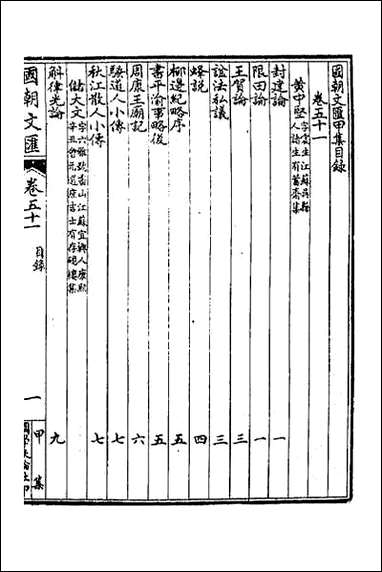 國朝文匯甲集目錄
卷五十一
黃中堅 字震生江蘇吳縣人諸生有蓄齋集
封建論 一
限田論 一
王賀論 三
諡法私議 三
蜂說 四
柳邊紀略序 五
書平渝事略後 五
周康王廟記 六
駿道人小傳 七
秋江散人小傳 七
儲大文 字六雅號畫山江蘇宜興人康熙辛丑會元選庶吉士有存硯樓集
斛律光論 九
國朝文匯 卷五十一 目錄 一 甲集